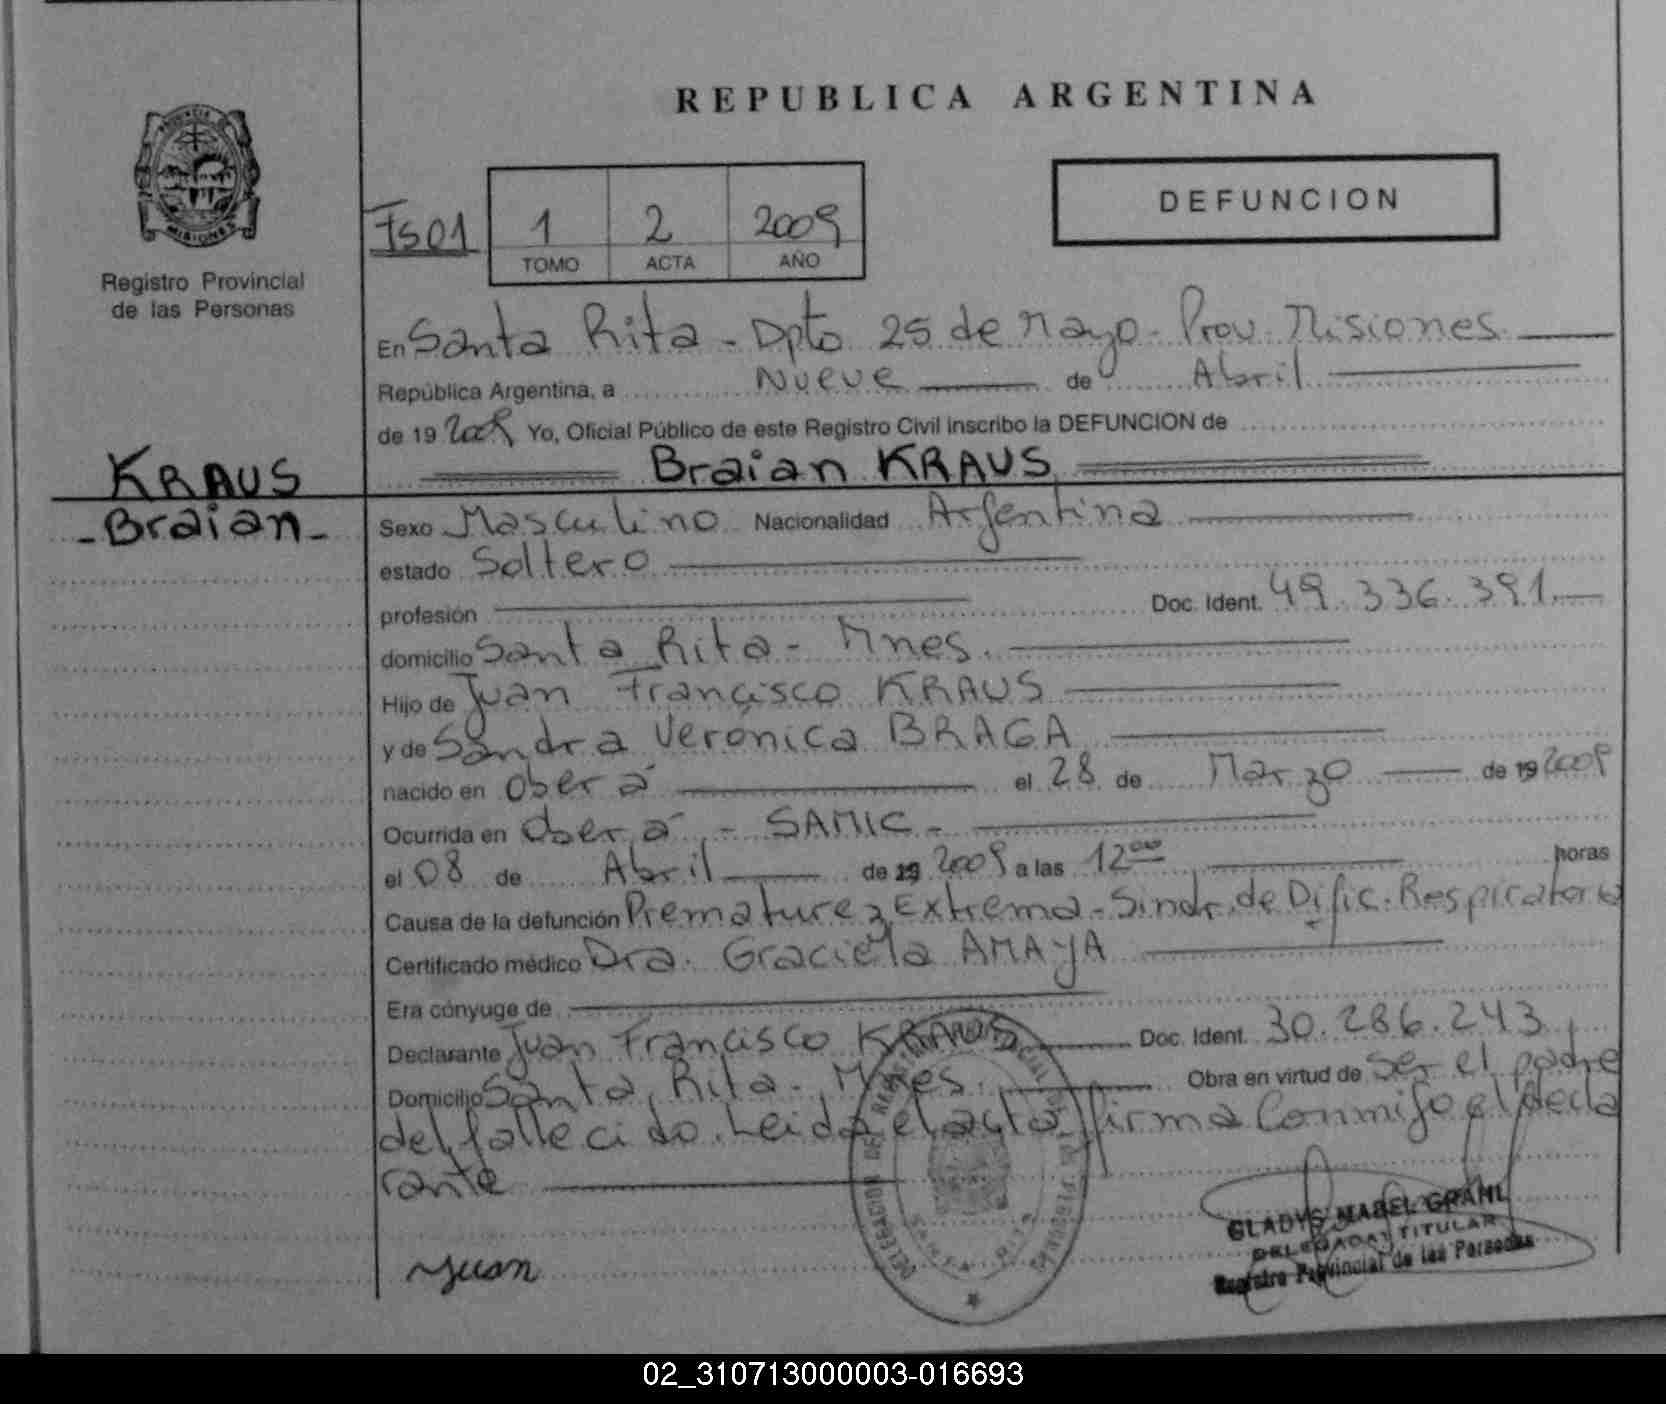 REPUBLICA ARGENTINA
PROVINCIA DE MISIONES
Registro Provincial
de las Personas
DEFUNCION
Fs01
1 2 2009
TOMO ACTA AÑO
En Santa Rita - Dpto 25 de Mayo - Prov. Misiones
República Argentina, a Nueve de Abril
de 19 2009 Yo, Oficial Público de este Registro Civil inscribo la DEFUNCION de
Braian KRAUS
KRAUS
- Braian -
Sexo Masculino Nacionalidad Argentina
estado Soltero
profesión Doc. Ident. 49.336.391.
domicilio Santa Rita - Mnes.
Hijo de Juan Francisco KRAUS
y de Sandra Verónica BRAGA
nacido en Oberá el 28 de Marzo de 19 2009
Ocurrida en Oberá - SAMIC -
el 08 de Abril de 19 2009 a las 12 00 horas
Causa de la defunción Prematurez Extrema - Sindr. de Dific. Respiratoria
Certificado médico Dra. Graciela AMAYA
Era cónyuge de
Declarante Juan Francisco KRAUS Doc. Ident. 30.286.243
Domicilio Santa Rita - Mnes. Obra en virtud de ser el padre
del fallecido. Leida el acta firma Conmigo el Decla
rante
Juan
DELEGACION DEL REGISTRO PROVINCIAL DE LAS PERSONAS
SANTA RITA
GLADYS MABEL GRAHL
DELEGADA TITULAR
Registro Provincial de las Personas
02_310713000003-016693